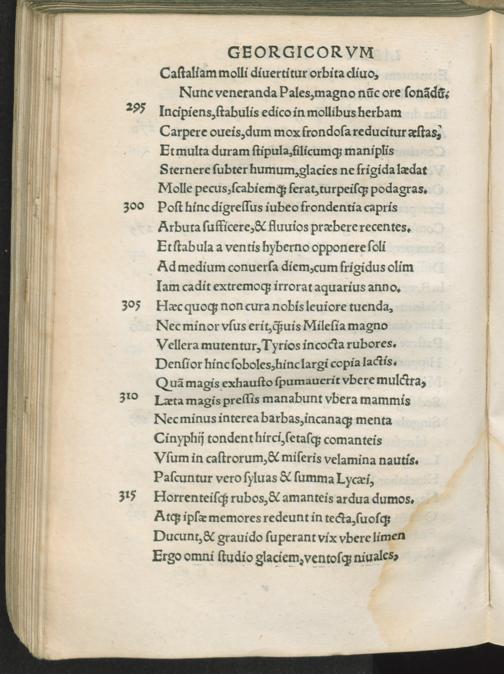 GEORGICORVM
Castaliam molli diuertitur orbita cliuo,
Nunc veneranda Pales, magno nũc ore sonãdũ.
295 Incipiens, stabulis edico in mollibus herbam
Carpere oueis, dum mox frondosa reducitur æstas,
Et multa duram stipula, filicumq; maniplis
Sternere subter humum, glacies ne frigida lædat
Molle pecus, scabiemq; ferat, turpeisq; podagras.
300 Post hinc digressus iubeo frondentia capris
Arbuta sufficere, & fluuios præbere recentes.
Et stabula a ventis hyberno opponere soli
Ad medium conuersa diem, cum frigidus olim
Iam cadit extremoq; irrorat aquarius anno.
305 Hæc quoq; non cura nobis leuiore tuenda,
Nec minor vsus erit, q̃uis Milesia magno
Vellera mutentur, Tyrios incocta rubores.
Densior hinc soboles, hinc largi copia lactis.
Quã magis exhausto spumauerit vbere mulctra,
310 Læta magis pressis manabunt vbera mammis
Nec minus interea barbas, incanaq; menta
Cinyphij tondent hirci, setasq; comanteis
Vsum in castrorum, & miseris velamina nautis.
Pascuntur vero syluas & summa Lycæi,
315 Horrenteisq; rubos, & amanteis ardua dumos.
Atq; ipsæ memores redeunt in tecta, suosq;
Ducunt, & grauido superant vix vbere limen
Ergo omni studio glaciem, ventosq; niuales,